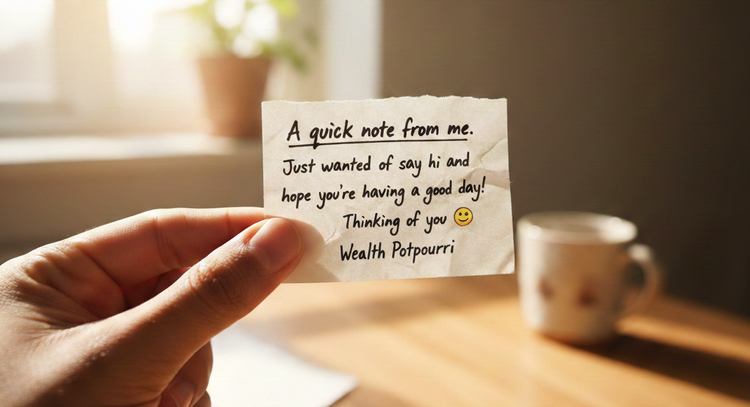 A quick note from me.
Just wanted of say hi and
hope you're having a good day!
Thinking of you 🙂
Wealth Potpourri